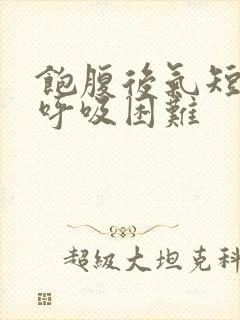 飽腹後氣短
呼吸困難
超級大坦克科